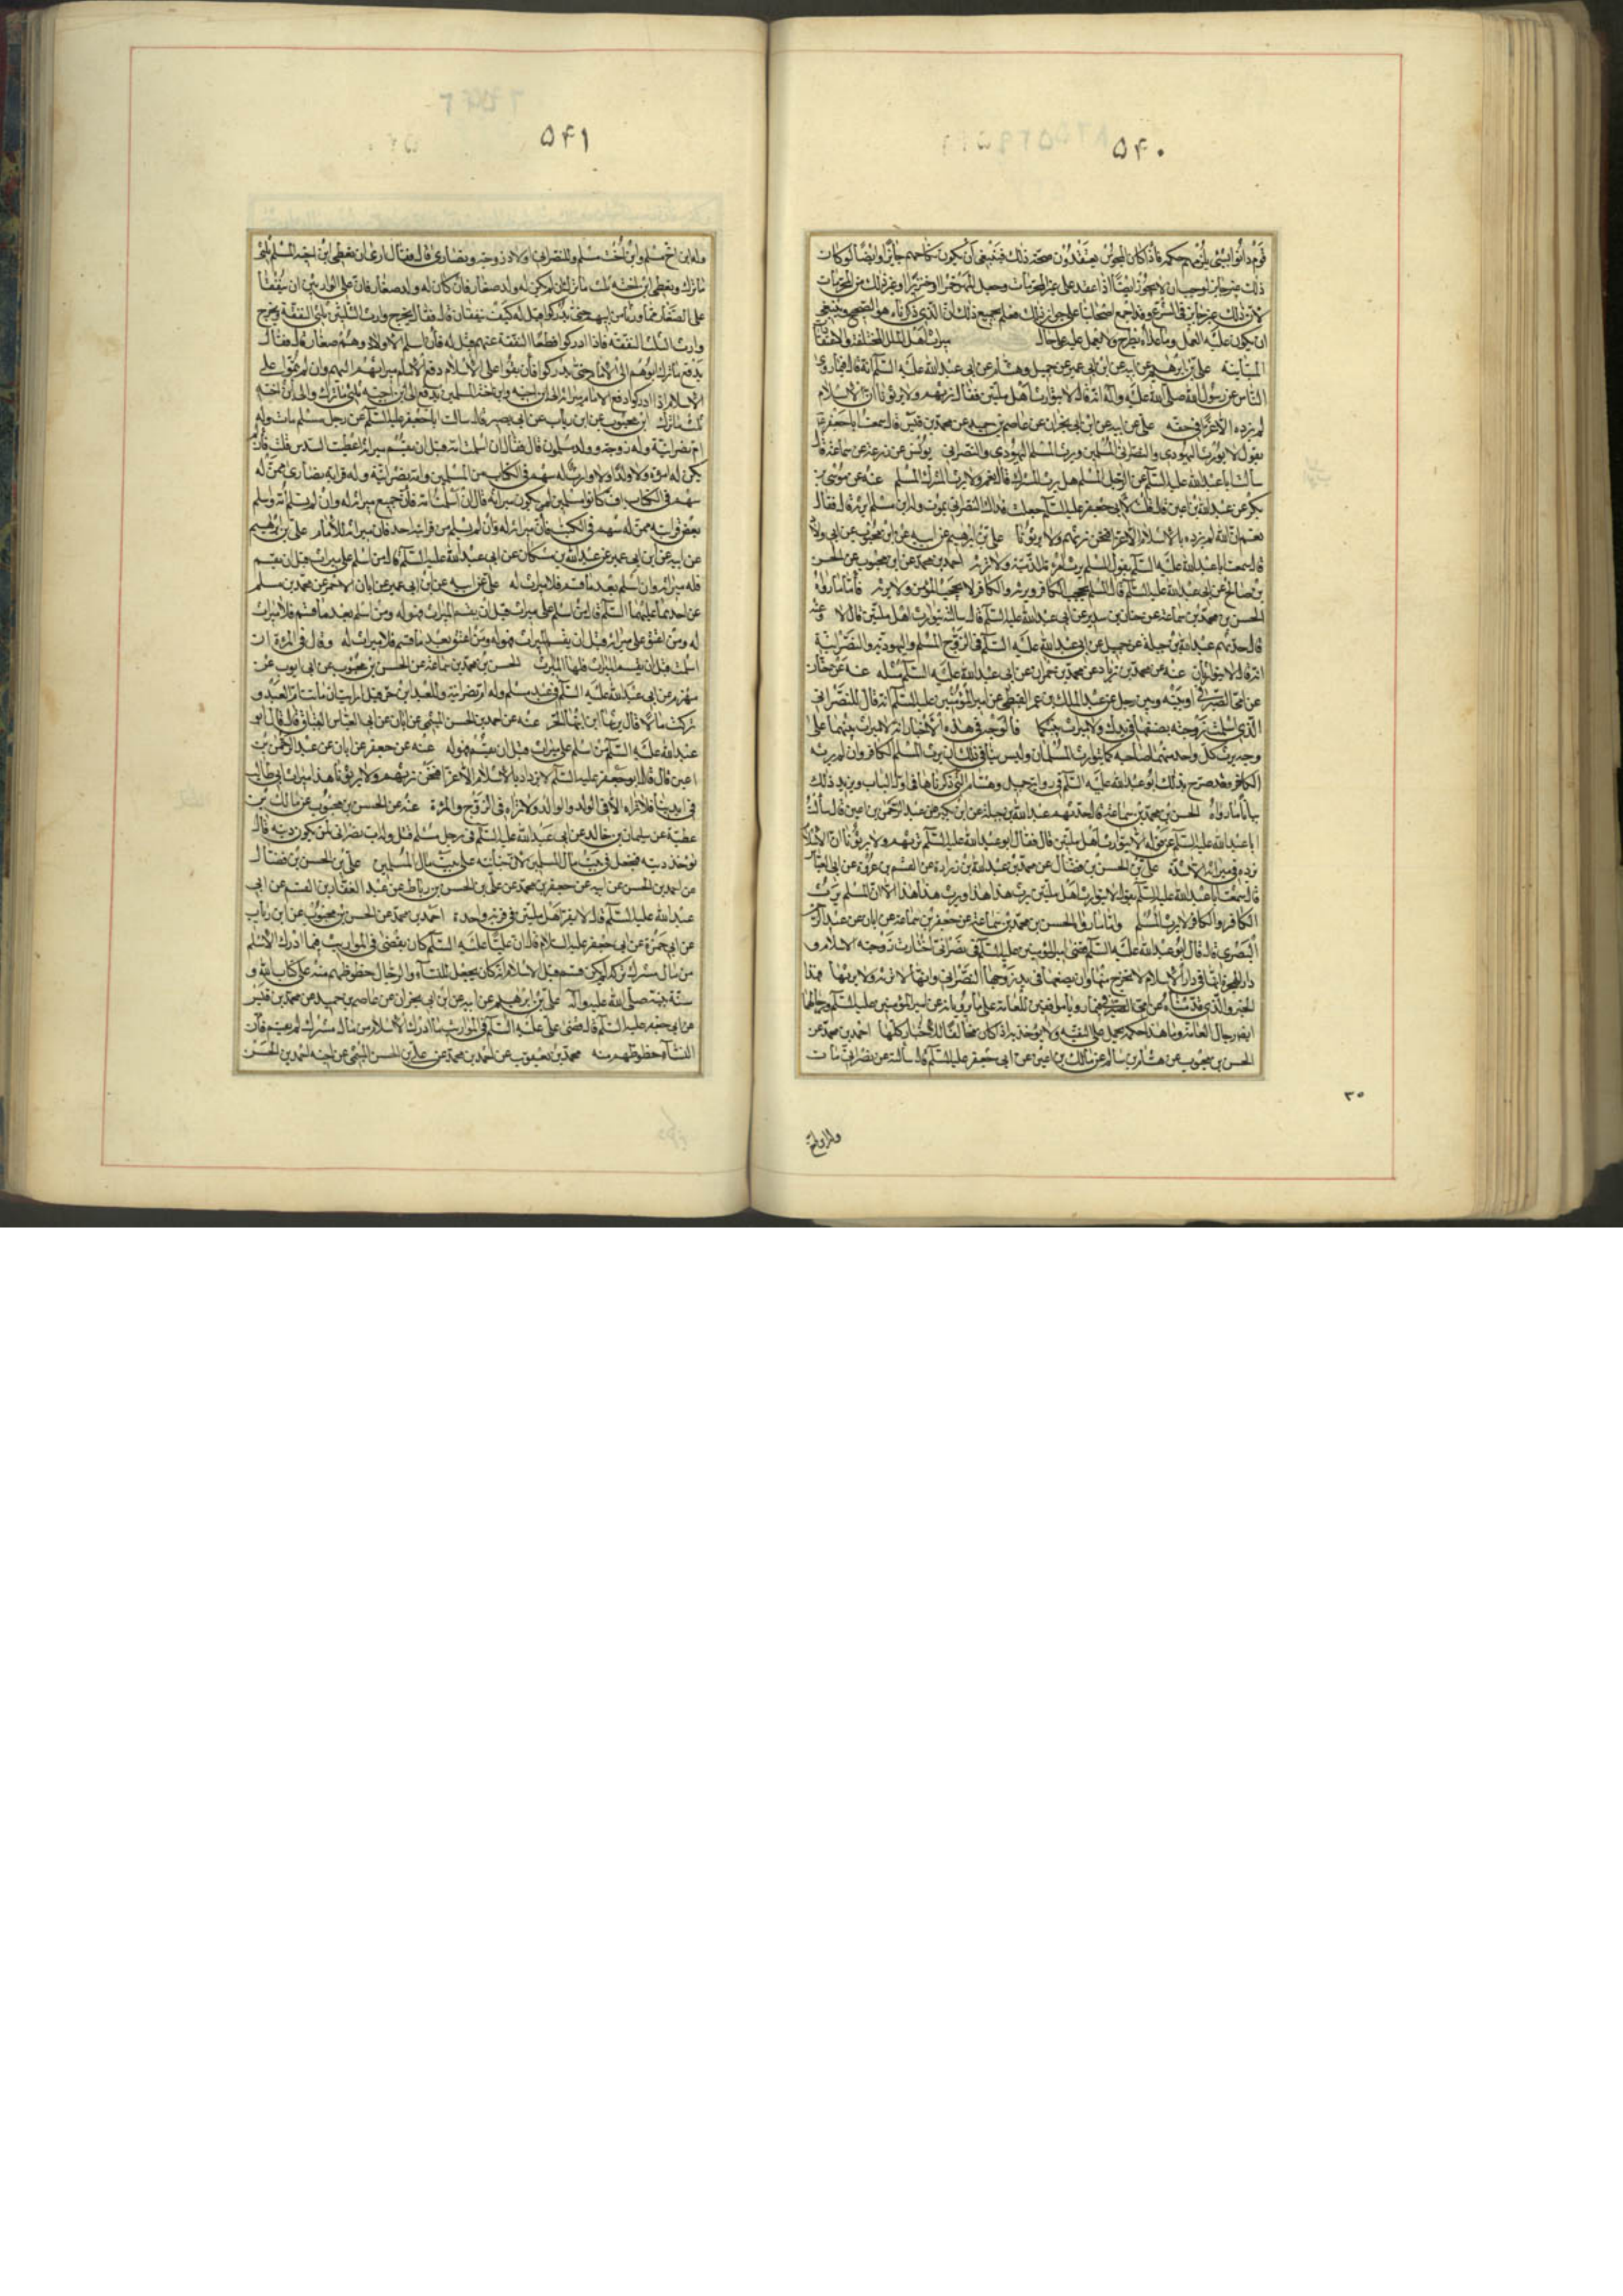 ٥٤٠
قوم دانوا بشئ يلزمهم حكمه فاذا كان المجوس يعتقدون صحة ذلك فينبغي أن يكون نكاحهم جايزا وايضا لو كان
ذلك غير جايز لوجب ان لا يجوز ايضا اذا عقد على غير المحرمات وجعل المهر خمرا او خنزيرا او غير ذلك من المحرمات
لان ذلك غير جايز في الشرع وقد اجمع اصحابنا على جواز ذلك فعلم بجميع ذلك ان الذي ذكرناه هو الصحيح وينبغي
ان يكون عليه العمل وما عداه يطرح ولا يعمل عليه على حال ميراث اهل الملل المختلفة والاعتقادات
المتباينة علي بن ابرهيم عن ابيه عن ابن ابي عمير عن جميل وهشام عن ابي عبد الله عليه السلام انه قال فيما روى
الناس عن رسول الله صلى الله عليه وآله انه قال لا يتوارث اهل ملتين فقال نرثهم ولا يرثونا ان الاسلام
لم يزده الا عزا في حقه علي عن ابيه عن ابن ابي نجران عن عاصم بن حميد عن محمد بن قيس قال سمعت ابا جعفر ع
يقول لا يورث اليهودي والنصراني المسلمين ويرث المسلم اليهودي والنصراني يونس عن زرعة عن سماعة قال
سألت ابا عبد الله عليه السلام عن الرجل المسلم هل يرث المشرك قال نعم ولا يرث المشرك المسلم عنه عن موسى بن
بكر عن عبد الله بن اعين قال قلت لابي جعفر عليه السلام جعلت فداك النصراني يموت وله ابن مسلم ايرثه قال فقال
نعم ان الله لم يزده بالاسلام الا عزا فنحن نرثهم ولا يرثونا علي بن ابرهيم عن ابيه عن ابن محبوب عن ابي ولاد
قال سمعت ابا عبد الله عليه السلام يقول المسلم يرث امرأته الذمية ولا ترثه احمد بن محمد عن ابن محبوب عن الحسن
بن صالح عن ابي عبد الله عليه السلام قال المسلم يحجب الكافر ويرثه والكافر لا يحجب المؤمن ولا يرثه فأما ما رواه
الحسن بن محمد بن سماعة عن حنان بن سدير عن ابي عبد الله عليه السلام قال سالته يتوارث اهل ملتين قال لا وعنه
قال حدثهم عبد الله بن جبلة عن جميل عن ابي عبد الله عليه السلام في الزوج المسلم واليهودية والنصرانية
انه قال لا يتوارثان عنه عن محمد بن زياد عن محمد بن حمران عن ابي عبد الله عليه السلام مثله عنه عن حنان
عن امي الصيرفي او بينه وبين رجل عن عبد الملك بن عمير القبطي عن امير المؤمنين عليه السلام انه قال للنصراني
الذي اسلمت زوجته بضعها في يدك ولا ميراث بينكما فالوجه في هذه الاخبار انه لا ميراث بينهما على
وجه يرث كل واحد منهما صاحبه كما يتوارث المسلمان وليس ينافي ذلك ان يرث المسلم الكافر وان لم يرثه
الكافر وقد صرح بذلك ابو عبد الله عليه السلام في رواية جميل وهشام التي ذكرناها في اول الباب ويزيد ذلك
بيانا ما رواه الحسن بن محمد بن سماعة قال حدثهم عبد الله بن جبلة عن ابن بكير عن عبد الرحمن بن اعين قال سألت
ابا عبد الله عليه السلام عن قوله لا يتوارث اهل ملتين قال فقال ابو عبد الله عليه السلام نرثهم ولا يرثونا ان الاسلام
لم يزده في ميراثه الا شدة علي بن الحسن بن فضال عن محمد بن عبد الله بن زرارة عن القسم بن عروة عن ابي العباس
قال سمعت ابا عبد الله عليه السلام يقول لا يتوارث اهل ملتين يرث هذا هذا ويرث هذا هذا الا ان المسلم يرث
الكافر والكافر لا يرث المسلم واما ما رواه الحسن بن محمد بن سماعة عن جعفر بن سماعة عن ابان عن عبد الرحمن
البصري قال قال ابو عبد الله عليه السلام قضى امير المؤمنين عليه السلام في نصراني اختارت زوجته الاسلام و
دار الهجرة انها في دار الاسلام لا تخرج منها وان بضعها في يد زوجها النصراني وانها لا ترثه ولا يرثها فهذا
الخبر والذي قدمناه عن امي الصيرفي فهما رويا موافقين للعامة على ما يروونه عن امير المؤمنين عليه السلام ورجالهما
ايضا رجال العامة وما هذا حكمه يحمل على التقية ولا يؤخذ به اذا كان مخالفا للاخبار كلها احمد بن محمد عن
الحسن بن محبوب عن هشام بن سالم عن مالك بن اعين عن ابي جعفر عليه السلام قال سألته عن نصراني مات
٣٥
وله ابن اخ
٥٤١
وله ابن اخ مسلم وابن اخت مسلم وللنصراني اولاد زوجة ونصارى قال فقال ارى ان يعطى ابن اخيه المسلم ثلثي
ما ترك ويعطى ابن اخته ثلث ما ترك ان لم يكن له ولد صغار فان كان له ولد صغار فان على الوارثين ان ينفقا
على الصغار مما ورثا من ابيهم حتى يدركوا قيل له كيف ينفقان قال فقال يخرج وارث الثلثين ثلثي النفقة ويخرج
وارث الثلث ثلث النفقة فاذا ادركوا قطعا النفقة عنهم قيل له فان اسلم الاولاد وهم صغار قال فقال
يدفع ما ترك ابوهم الى الامام حتى يدركوا فان بقوا على الاسلام دفع الامام ميراثهم اليهم وان لم يبقوا على
الاسلام اذا ادركوا دفع الامام ميراثه الى ابن اخيه وابن اخته المسلمين يدفع الى ابن اخيه ثلثي ما ترك والى ابن اخته
ثلث ما ترك ابن محبوب عن ابن رياب عن ابي بصير قال سالت ابا جعفر عليه السلام عن رجل مسلم مات وله
ام نصرانية وله زوجة وولد مسلمون قال فقال ان اسلمت امه قبل ان يقسم ميراثه اعطيت السدس قلت فان لم
يكن له امرأة ولا ولد ولا وارث له سهم في الكتاب من المسلمين وامه نصرانية وله قرابة نصارى ممن له
سهم في الكتاب لو كانوا مسلمين لمن يكون ميراثه قال ان اسلمت امه فان جميع ميراثه له وان لم تسلم امه واسلم
بعض قرابته ممن له سهم في الكتاب فان ميراثه له وان لم يسلم من قرابته احد فان ميراثه للامام علي بن ابرهيم
عن ابيه عن ابن ابي عمير عن عبد الله بن مسكان عن ابي عبد الله عليه السلام قال من اسلم على ميراث قبل ان يقسم
فله ميراثه وان اسلم بعد ما قسم فلا ميراث له علي عن ابيه عن ابن ابي عمير عن ابان الاحمر عن محمد بن مسلم
عن احدهما عليهما السلام قال من اسلم على ميراث قبل ان يقسم الميراث فهو له ومن اسلم بعد ما قسم فلا ميراث
له ومن اعتق على ميراث قبل ان يقسم الميراث فهو له ومن اعتق بعد ما قسم فلا ميراث له وقال في المرأة ان
اسلمت قبل ان يقسم الميراث فلها الميراث الحسن بن محمد بن سماعة عن الحسن بن محبوب عن ابي ايوب عن
مهزم عن ابي عبد الله عليه السلام في عبد مسلم وله ام نصرانية وللعبد ابن حر قيل ارايت ان ماتت ام العبد و
تركت مالا قال يرثها ابن ابنها الحر عنه عن احمد بن الحسن الميثمي عن ابان عن ابي العباس البقباق قال قال ابو
عبد الله عليه السلام من اسلم على ميراث قبل ان يقسم فهو له عنه عن جعفر عن ابان عن عبد الرحمن بن
اعين قال قال ابو جعفر عليه السلام لا يزداد بالاسلام الا عزا فنحن نرثهم ولا يرثونا هذا ميراث ابي طالب
في ايدينا فلا نراه الا في الولد والوالد ولا نراه في الزوج والمرأة عنه عن الحسن بن محبوب عن مالك بن
عطية عن سليمان بن خالد عن ابي عبد الله عليه السلام في رجل مسلم قتل وله اب نصراني لمن يكون ديته قال
تؤخذ ديته فتجعل في بيت مال المسلمين لان جنايته على بيت مال المسلمين علي بن الحسن بن فضال
عن احمد بن الحسن عن ابيه عن جعفر بن محمد عن علي بن الحسن بن رباط عن عبد الغفار بن القسم عن ابي
عبد الله عليه السلام قال لا يقر اهل ملتين في قرية واحدة احمد بن محمد عن الحسن بن محبوب عن ابن رياب
عن ابي حمزة عن ابي جعفر عليه السلام قال ان عليا عليه السلام كان يقضي في المواريث فيما ادرك الاسلام
من مال مشرك تركه لم يكن قسم قبل الاسلام انه كان يجعل للنساء والرجال حظوظهم منه على كتاب الله و
سنة نبيه صلى الله عليه واله علي بن ابرهيم عن ابيه عن ابن ابي نجران عن عاصم بن حميد عن محمد بن قيس
عن ابي جعفر عليه السلام قال قضى علي عليه السلام في المواريث ما ادرك الاسلام من مال مشرك لم يقسم فان
للنساء حظوظهن منه محمد بن يعقوب عن احمد بن محمد عن علي بن الحسن التيمي عن اخيه احمد بن الحسن